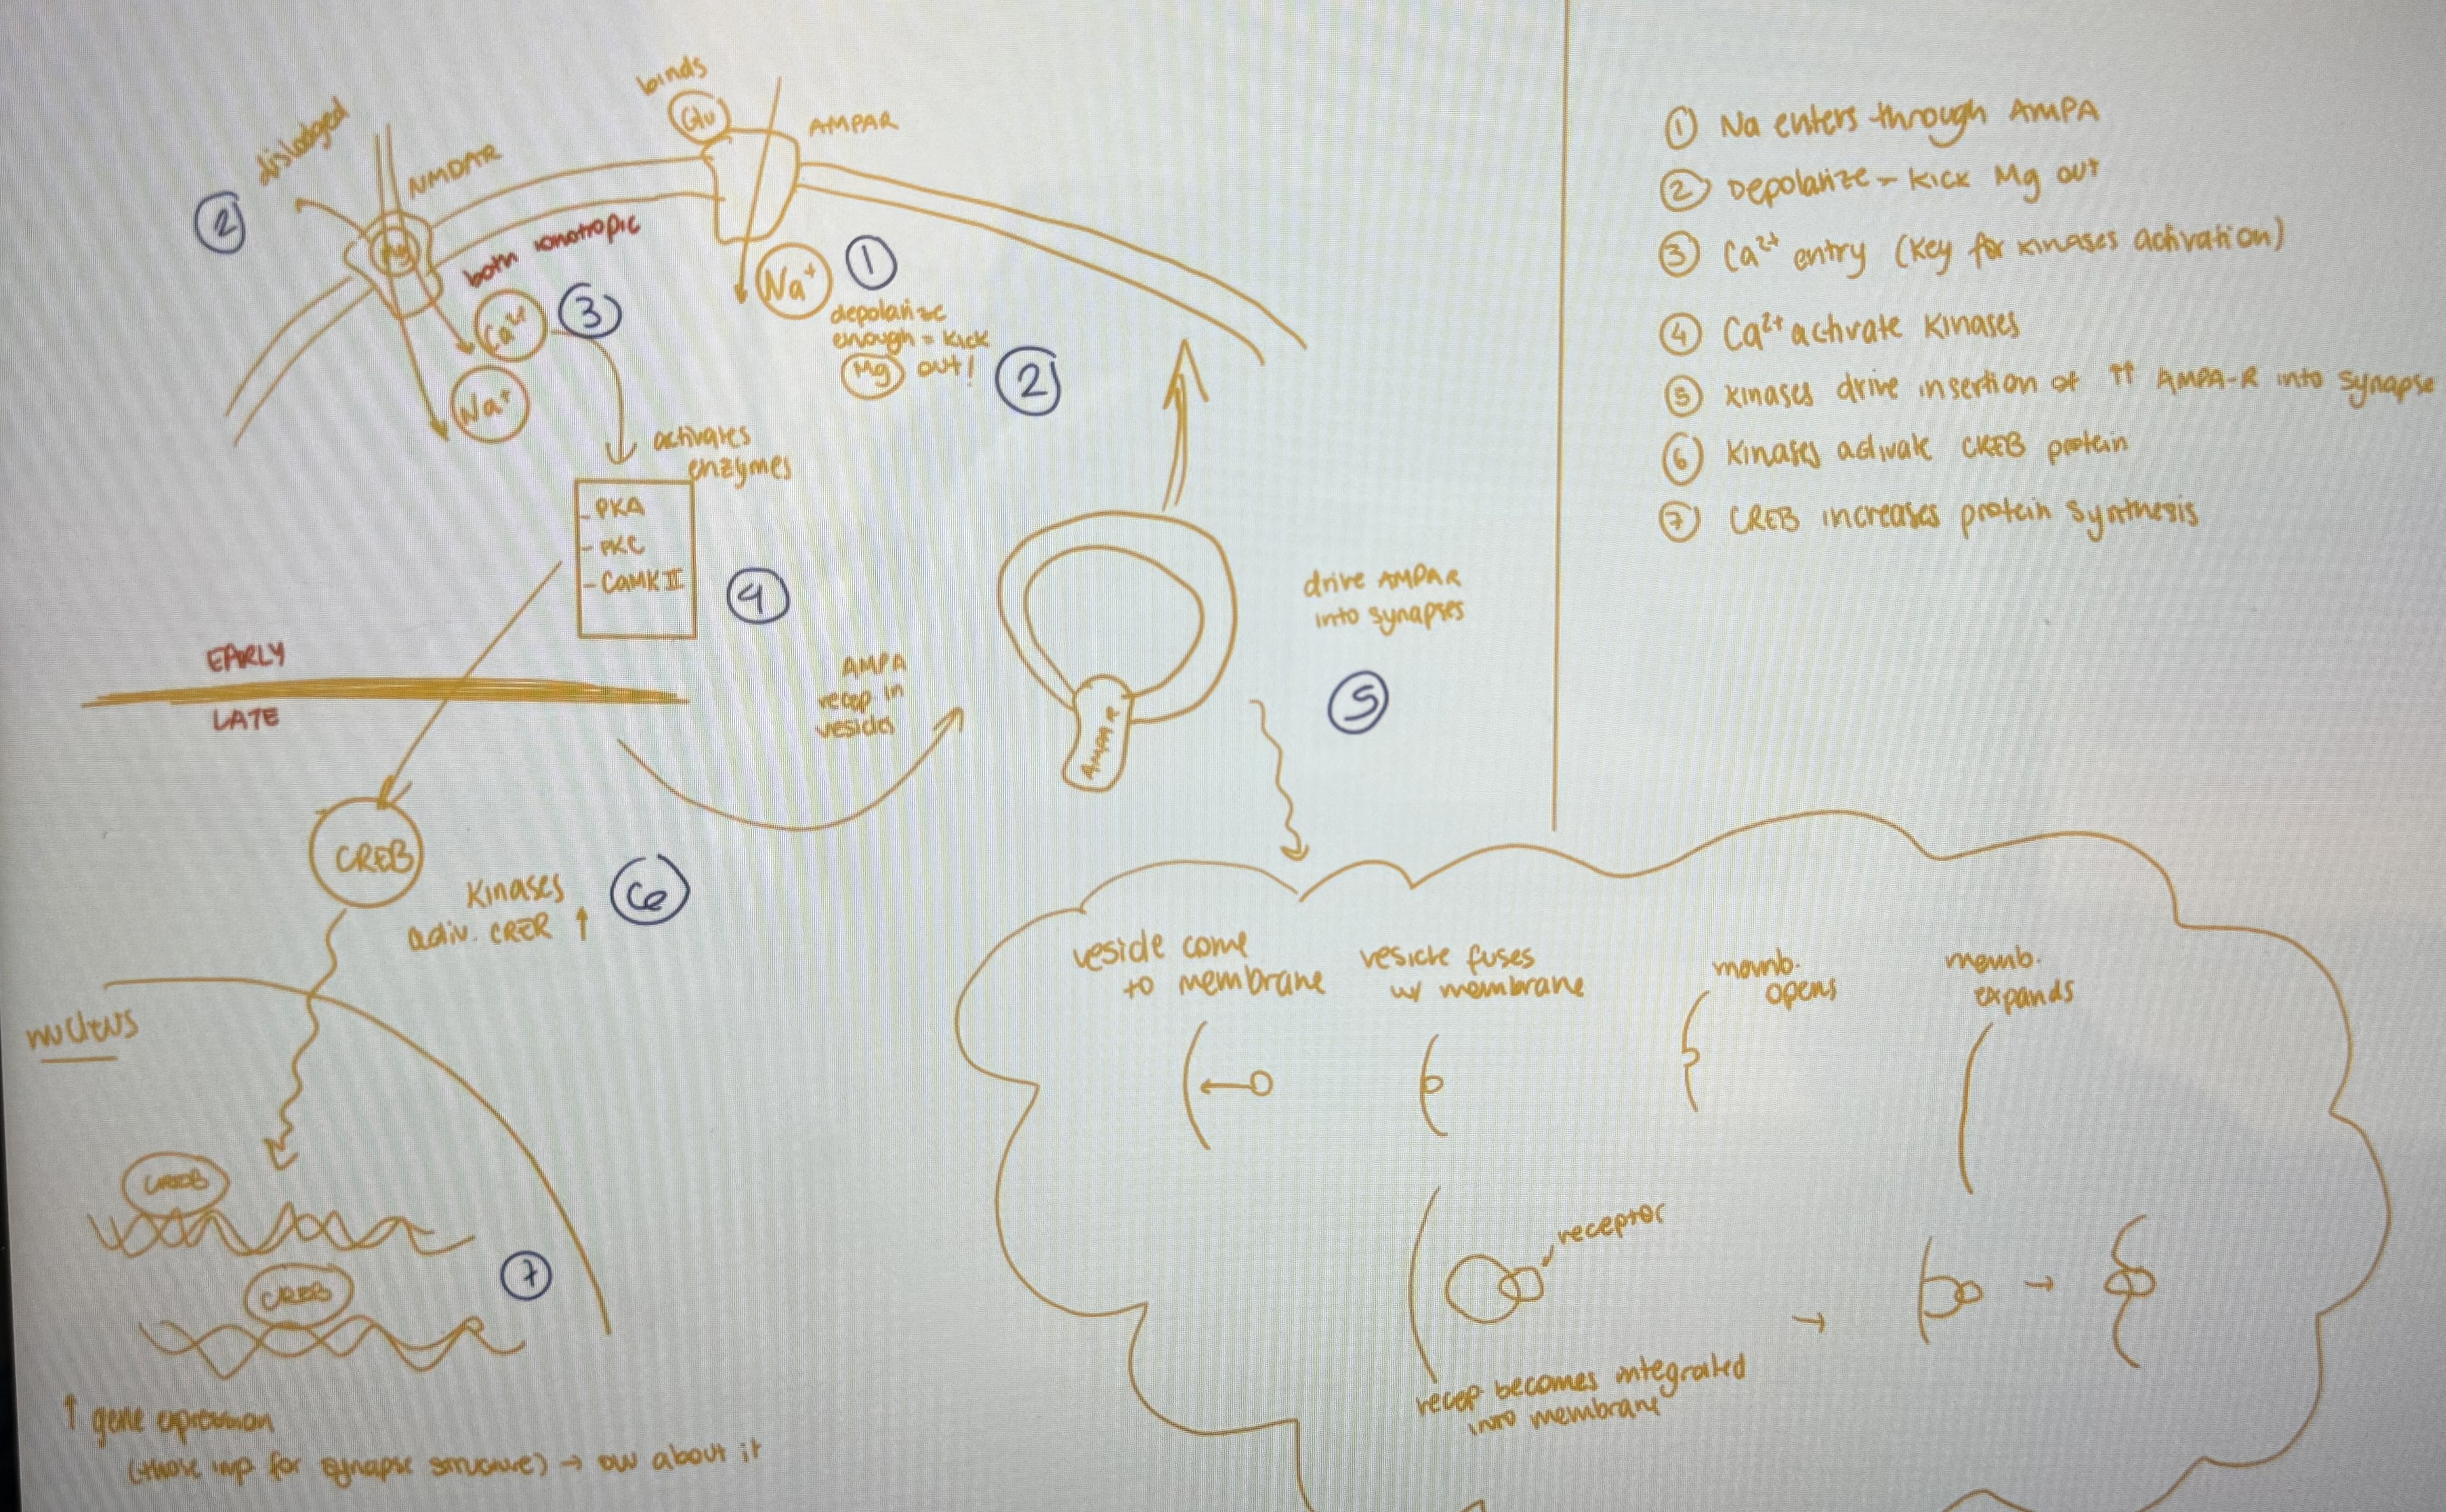 dislodged
②
NMDAR
Mg
both ionotropic
Ca²⁺
③
Na⁺
binds
Glu
AMPAR
Na⁺
①
depolarize
enough = kick
Mg out!
②
activates
enzymes
- PKA
- PKC
- CaMK II
④
EARLY
LATE
AMPA
recep. in
vesicles
AMPAR
drive AMPAR
into synapses
⑤
CREB
Kinases
activ. CREB ↑
⑥
nucleus
CREB
CREB
⑦
↑ gene expression
(those imp for synapse structure) → about it
① Na enters through AMPA
② Depolarize - kick Mg out
③ Ca²⁺ entry (key for kinases activation)
④ Ca²⁺ activate kinases
⑤ kinases drive insertion of ↑↑ AMPA-R into synapse
⑥ Kinases activate CREB protein
⑦ CREB increases protein synthesis
vesicle come
to membrane
vesicle fuses
w/ membrane
memb.
opens
memb.
expands
receptor
recep becomes integrated
into membrane